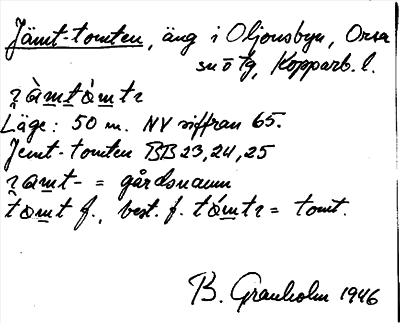 Jämt-tomten, äng i Oljonsbyn, Orsa
sn ö tg, Kopparb. l.
Läge: 50 m. NV siffran 65.
Jemt-tomten BB 23, 24, 25
= gårdsnamn
f., best. f. = tomt.
B. Granholm 1946